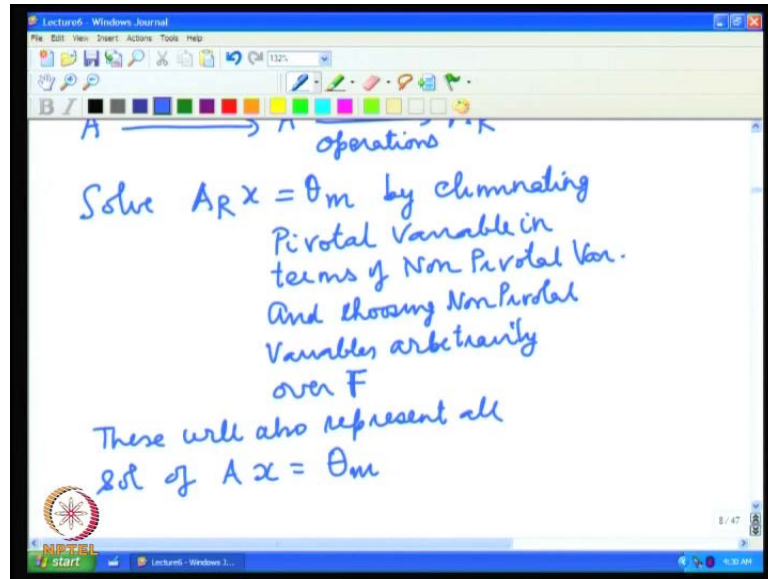 Lecture6 - Windows Journal
File Edit View Insert Actions Tools Help
132%
B I
A → A → A_R
operations
Solve A_R x = θ_m by elimnating
Pivotal Variable in
terms of Non Pivotal Var.
And choosing Non Pivotal
Variables arbitrarily
over F
These will also represent all
sol of A x = θ_m
8 / 47
NPTEL
start Lecture6 - Windows J... 4:30 AM